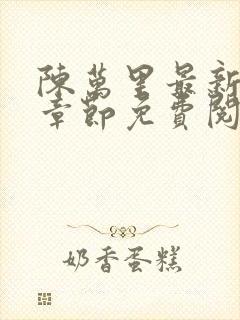 陳萬里最新
章節免費閱
奶香蛋糕